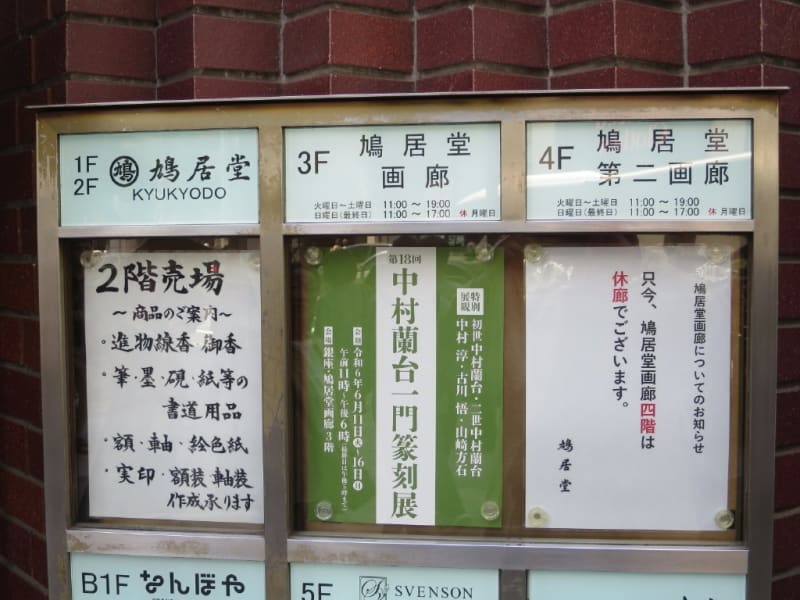 1F
2F
鳩 鳩居堂
KYUKYODO
3F 鳩居堂
画廊
火曜日〜土曜日 11:00 〜 19:00
日曜日(最終日) 11:00 〜 17:00 休 月曜日
4F 鳩居堂
第二画廊
火曜日〜土曜日 11:00 〜 19:00
日曜日(最終日) 11:00 〜 17:00 休 月曜日
2階売場
〜商品のご案内〜
・進物線香・御香
・筆・墨・硯・紙等の
書道用品
・額・軸・絵色紙
・実印・額装・軸装
作成承ります
特別展観
初世中村蘭台・二世中村蘭台
中村 淳・古川 悟・山崎方石
第18回
中村蘭台一門篆刻展
会期 令和6年6月11日㊋〜16日㊐
午前11時〜午後6時
会場 銀座・鳩居堂画廊3階
鳩居堂画廊についてのお知らせ
只今、鳩居堂画廊四階は
休廊でございます。
鳩居堂
B1F なんぼや
5F SVENSON